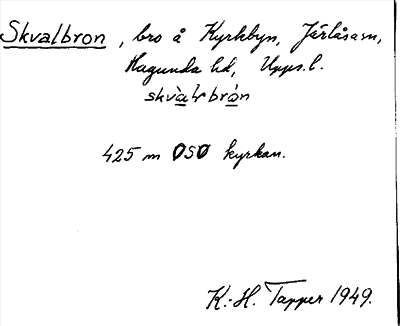 Skvalbron, bro å Kyrkbyn, Järlåsasn,
Hagunda hd, Upps. l.
skvàlbrón
425 m OSO kyrkan.
K.-H. Tapper 1949.